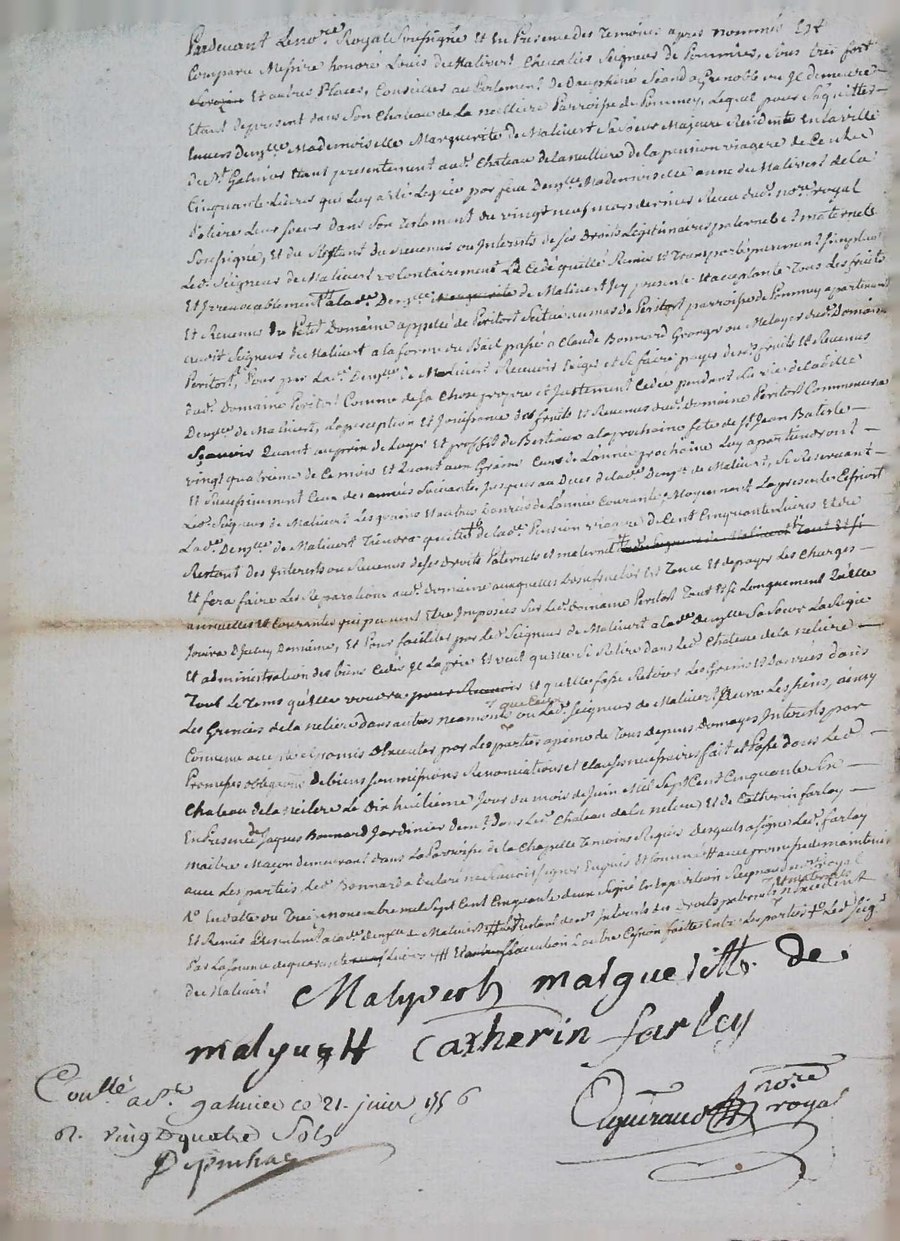 Pardevant Le nore Royal Soussigné et en Presence des Temoins apres nommés Est
Comparu Messire honoré Louis de Malivert Chevalier Seigneur de Pommiers, Sous
et autres Places, Conseiller au Parlement de Dauphiné Seand a Grenoble ou Jl demeure
Etant de present dans Son Chateau de la nolliere Parroisse de Pommey, Lequel pour S'aquitter
Envers Demlle Mademoiselle Marguerite de Malivert Sa Sœur Majeure Residente en la ville
de St Galmier Etant presentement aud. Chateau de la nulliere de la pension viagere de Cent
Cinquante Livres qui Luy a été Leguée par feüe Demlle Mademoiselle anne de Malivert de la
Leur Sœur dans Son Testament du vingt neuf mars dernier Receu dud. nore royal
Soussigné, Et du Restant du Revenus ou Interests de ses Droits Légitimaires paternels et maternels
Led. Seigneur de Malivert volontairement a Cedé quitté Remis et Transporté purement simplement
Et Irrevocablement a lad. Demlle de Malivert Icy presente et acceptante Tous Les fruits
Et Revenus Du Petit Domaine appellé de Peritort Scitué au mas de Peritort parroisse de Pommey apartenant
aud. Seigneur de Malivert a la forme du Bail passé a Claude Bonnard Granger ou Metayer dud. Domaine
Peritort, Pour par Lad. Demlle de Malivert Recevoir Exiger et se faire payer desd. fruits et Revenus
dud. Domaine Peritort Comme de sa Chose propre et Justement Cedée pendant La vie de Ladite
Demlle de Malivert, La perception et Jouissance des fruits et Revenus dud. Domaine Peritort Commencera
Sçavoir Quant au prix de et proffit de Bestiaux a la prochaine fete de St Jean Batiste
vingt quatrieme de Ce mois et Quant aux Grains Ceux de L'année prochaine Luy apartiendront
Et Successivement Ceux des années Suivantes, jusques au Deces de lad. Demlle de Malivert, Se Reservant
Led. Seigneur de Malivert Les grains et autres Denrées de L'année Courante, Moyennant La presente
Lad. Demlle de Malivert Tiendra quitte de lad. Pension viagere de Cent Cinquante Livres Et de
Restant des Interests ou Revenus de ses Droits Paternels et maternels
Et fera faire Les Reparations aud. Domaine auxquelles Tenue Et de payer Les Charges
annuelles et Courantes qui peuvent Etre Imposées Sur Led. Domaine Peritort Tout Et Si Longuement qu'elle
Joüira D'Iceluy Domaine, Et Pour faciliter par led. Seigneur de Malivert a lad. demlle Sa Sœur La Regie
et administration des biens Cedés Jl La prie Et veut qu'elle Se Retire dans Led. Chateau de la neliere
Tout Le Tems qu'elle voudra Et qu'elle fasse Retirer Les Grains et Denrées dans
Les Greniers de la neliere dans autres neamoins que Ceux ou Led. Seigneur de Malivert Aura Les siens, ainsy
Convenu accepté et promis D'Executer par Les parties a peine de Tous Depens Domages Interests par
Promesses obligations de biens Soumissions Renonciations et Clauses necessaires fait et Passé dans Led.
Chateau de la neiliere Le Dix huitième Jour du mois de Juin Mil Sept Cent Cinquante Six
En Presence de Jaques Bonnard Jardinier demt dans Led. Chateau de la neliere Et de Catherin farlay
maître Maçon demeurant dans La Parroisse de la Chapelle Temoins Requis Desquels a Signé Led. farlay
avec Les parties, Led. Bonnard a Declaré ne Scavoir Signer Enquis Et Sommé avec promesse de maintenir
En date du Treize novembre mil Sept Cent Cinquante deux Signé nore Royal
Et Remis Presentement a lad. Demlle de Malivert Restant desd. Interests des Droits paternels et maternels
Par La Somme de quarante Livres Et L'autre faites Entre Les parties Led. Seigr
de Malivert
Malyvert malguerittte de
malyvert Catherin farlay
nore
royal
Conllé a St galmier ce 21 juin 1756
R. vingt quatre Sols